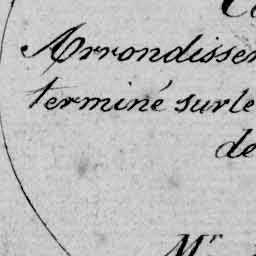 Arrondissem
terminé sur le
de
Mr